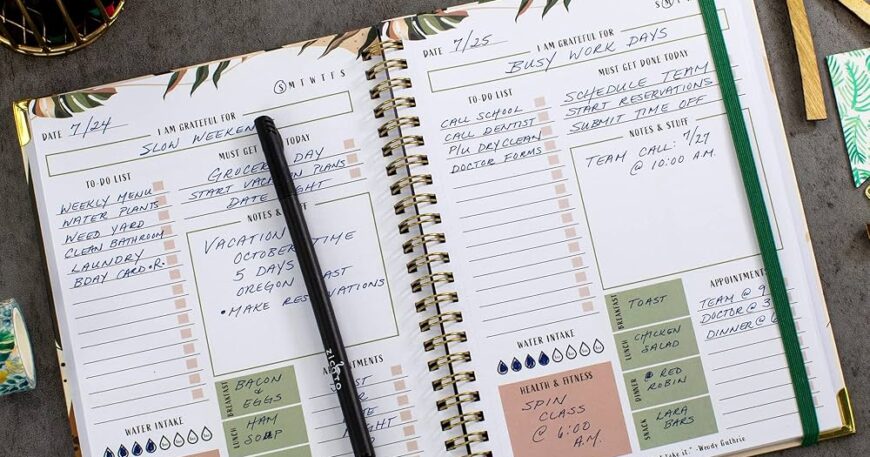 S M T W T F S
DATE 7/24
I AM GRATEFUL FOR
SLOW WEEKEN
TO-DO LIST
WEEKLY MENU
WATER PLANTS
WEED YARD
CLEAN BATHROOM
LAUNDRY
BDAY CARD
MUST GET TODAY
GROCERY DAY
START VACATION PLANS
DATE NIGHT
NOTES & STUFF
VACATION
OCTOBER TIME
5 DAYS
OREGON COAST
• MAKE RESERVATIONS
BREAKFAST
BACON
&
EGGS
LUNCH
HAM
SOUP
WATER INTAKE
zlcapo
DATE 7/25
S M T
I AM GRATEFUL FOR
BUSY WORK DAYS
TO-DO LIST
CALL SCHOOL
CALL DENTIST
P/U DRYCLEAN
DOCTOR FORMS
MUST GET DONE TODAY
SCHEDULE TEAM
START RESERVATIONS
SUBMIT TIME OFF
NOTES & STUFF
TEAM CALL: 7/27
@ 10:00 A.M.
WATER INTAKE
HEALTH & FITNESS
SPIN
CLASS
@ 6:00
A.M.
BREAKFAST
TOAST
LUNCH
CHICKEN
SALAD
DINNER
RED
ROBIN
SNACK
LARA
BARS
APPOINTMEN
TEAM @ 9
DOCTOR @ 3
DINNER @ 6
take it." -Wendy Guthrie